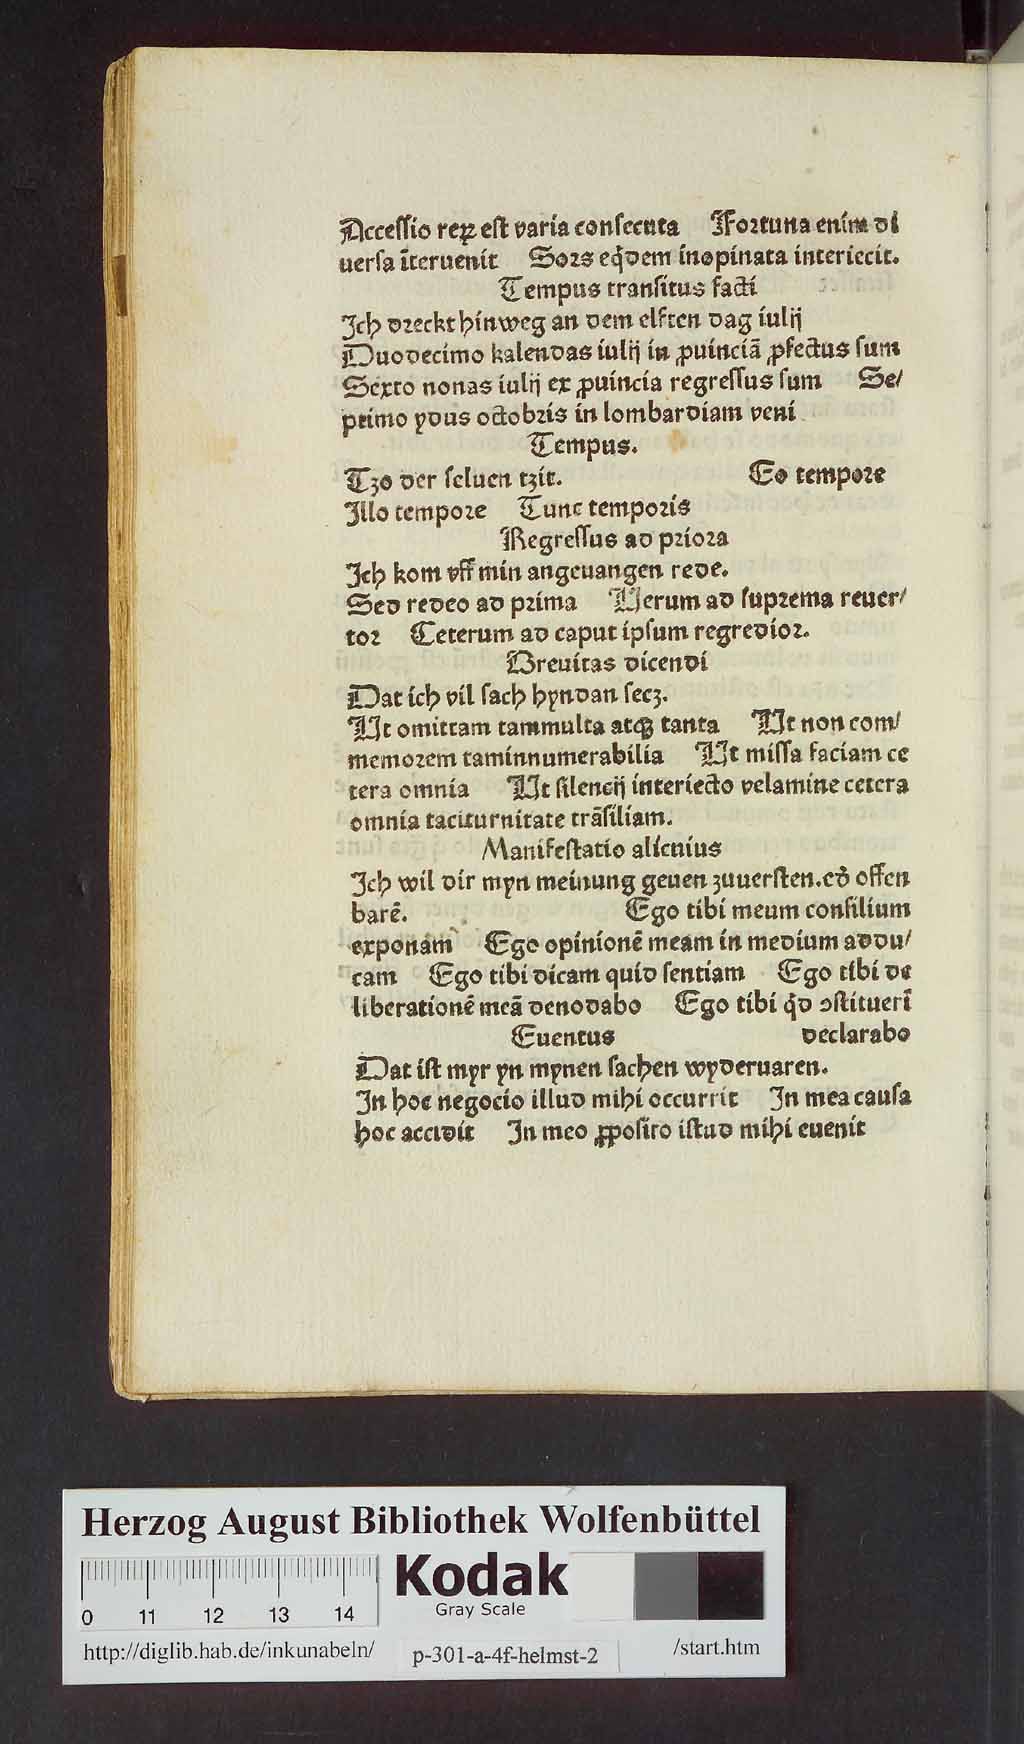 Accessio reꝝ est varia consecuta Fortuna enim di
uersa īteruenit Sors eqͥdem inopinata interiecit.
Tempus transitus facti
Ich dreckt hinweg an dem elften dag iulij
Duodecimo kalendas iulij in ꝓuinciā ꝓfectus sum
Sexto nonas iulij ex ꝓuincia regressus sum Se/
ptimo ydus octobris in lombardiam veni
Tempus.
Tzo der seluen tzit. Eo tempore
Illo tempore Tunc temporis
Regressus ad priora
Ich kom vff min angeuangen rede.
Sed redeo ad prima Verum ad suprema reuer/
tor Ceterum ad caput ipsum regredior.
Breuitas dicendi
Dat ich vil sach hyndan secz.
Ut omittam tammulta atqꝫ tanta Ut non com/
memorem taminnumerabilia Ut missa faciam ce
tera omnia Ut silencij interiecto velamine cetera
omnia taciturnitate trāsiliam.
Manifestatio alicuius
Ich wil dir myn meinung geuen zuuersten. offen
barē. Ego tibi meum consilium
exponam Ego opinionē meam in medium addu/
cam Ego tibi dicam quid sentiam Ego tibi de
liberationē meā denodabo Ego tibi qͥd ↄstituerī
Euentus declarabo
Dat ist myr yn mynen sachen wyderuaren.
In hoc negocio illud mihi occurrit In mea causa
hoc accidit In meo ꝓposito istud mihi euenit
Herzog August Bibliothek Wolfenbüttel
0 11 12 13 14
Kodak
Gray Scale
http://diglib.hab.de/inkunabeln/ p-301-a-4f-helmst-2 /start.htm